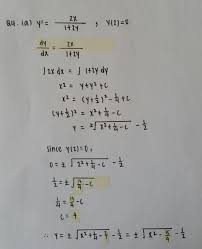 Q4. (a) y' = 2x / 1+2y , y(2)=0
dy/dx = 2x / 1+2y
∫ 2x dx = ∫ 1+2y dy
x² = y+y²+c
x² = (y+½)² - ¼ + c
(y+½)² = x² + ¼ - c
y = ±√(x² + ¼ - c) - ½
Since y(2)=0,
0 = ±√(2² + ¼ - c) - ½
½ = ±√(17/4 - c)
¼ = 17/4 - c
c = 4
∴ y = ±√(x² + ¼ - 4) - ½ = ±√(x² - 15/4) - ½